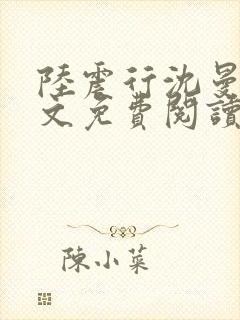 陸震行沈曼
文免費閱讀
陳小菜